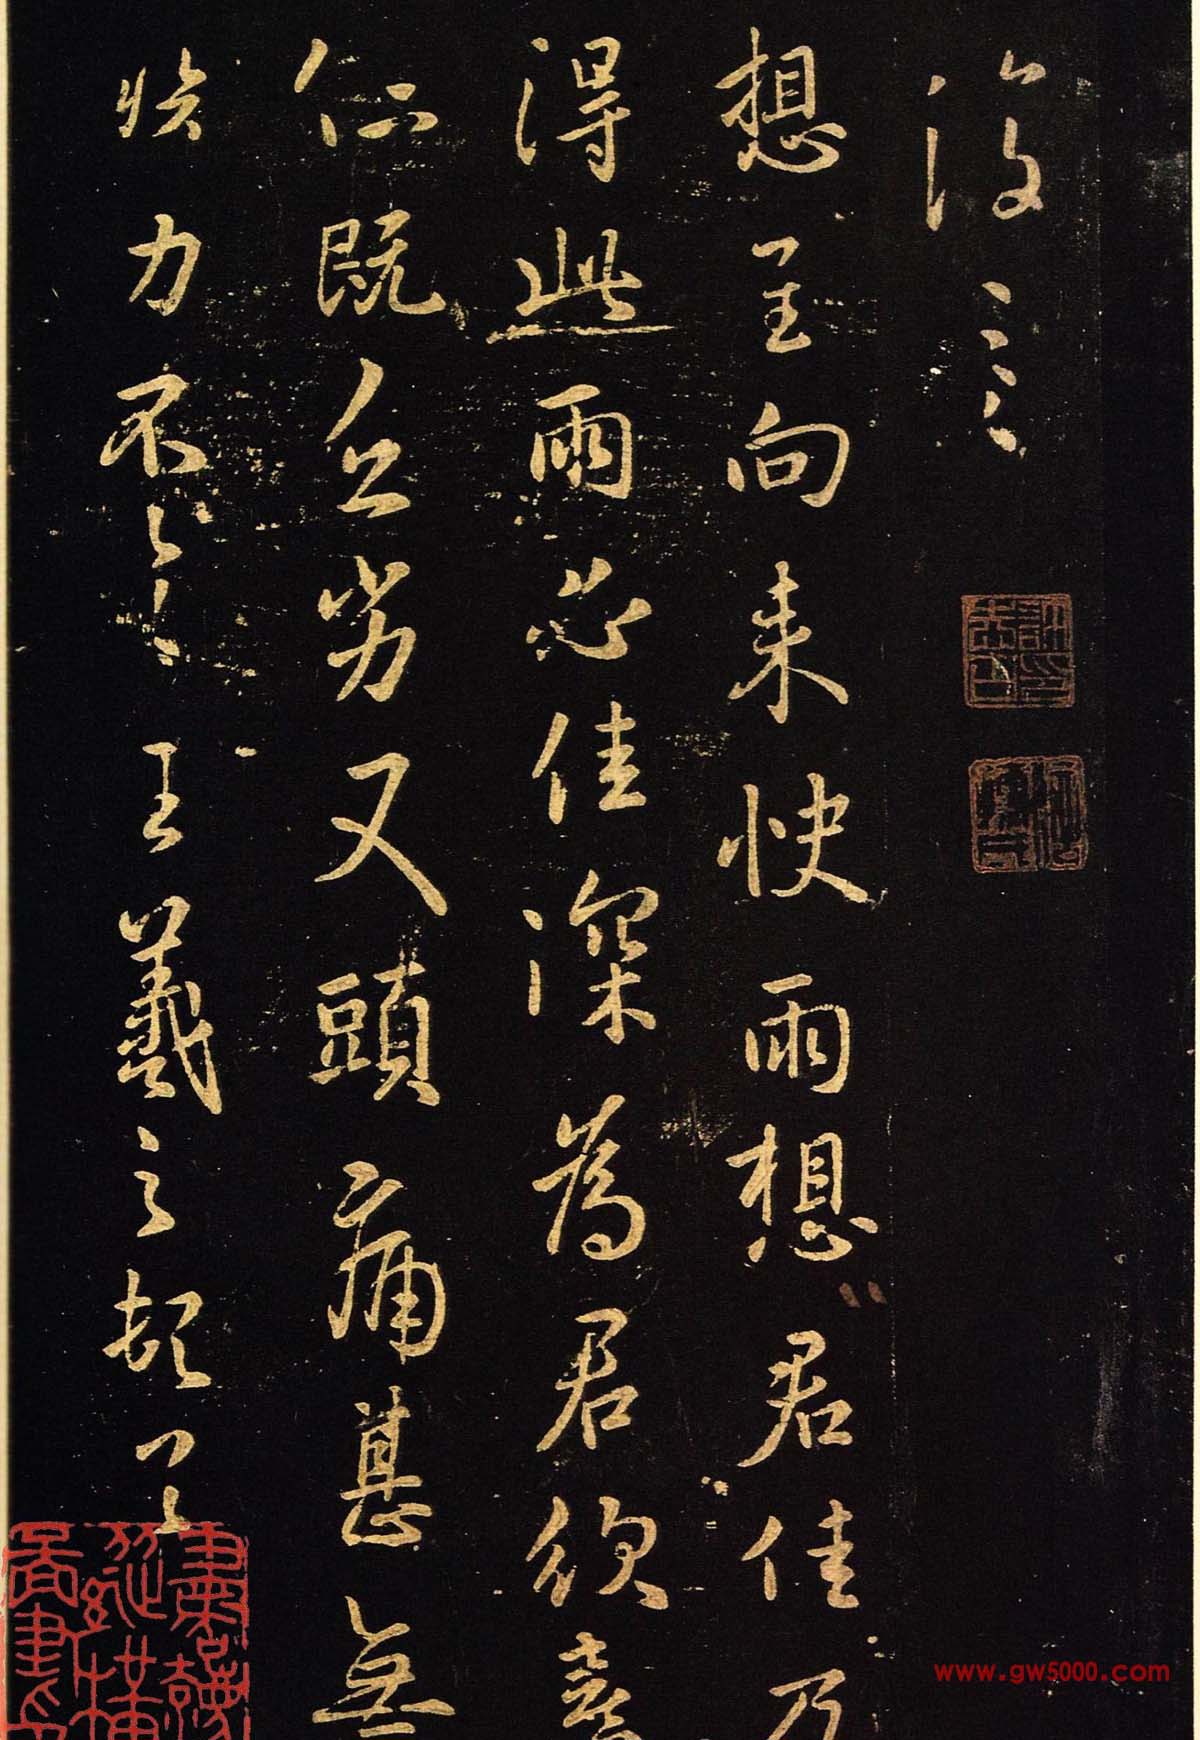 復
想至向来快雨想君佳乃
得此雨必佳深為君欣喜
仁既乏劣又頭痛甚無
力不王羲之頓首
www.gw5000.com